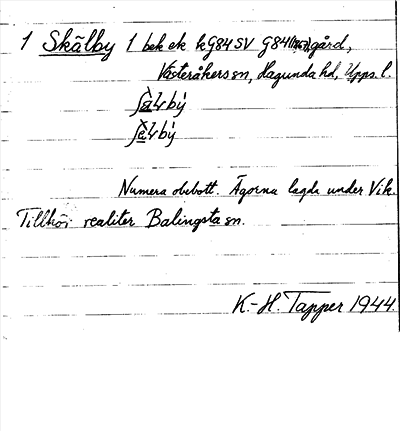 1 Skälby 1 bek ek kG84SV G84(1967), gård,
Västeråkers sn, Hagunda hd, Upps. l.
Numera obebott. Ägorna lagda under Vik.
Tillhör realiter Balingsta sn.
K.-H. Tapper 1944.